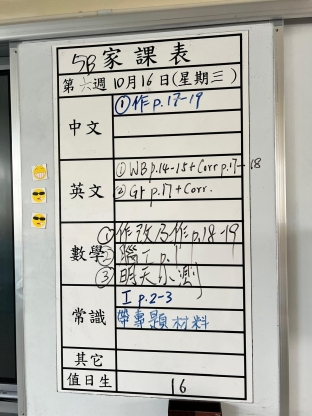 5B家課表
第六週10月16日(星期三)
中文
①作p.17-19
英文
①WB p.14-15+Corr p.17-18
②Gr p.17+Corr.
數學
①作改及作p.18-19
②腦工p.
③明天小測
常識
工p.2-3
帶專題材料
其它
值日生
16